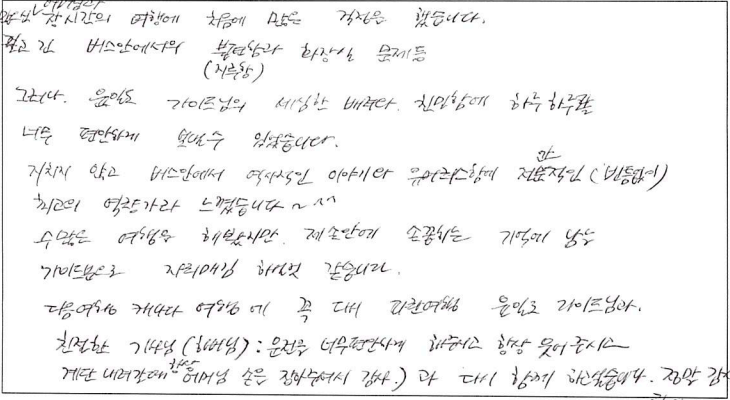 장시간의 여행에 처음에 많은 걱정을 했습니다.
길고 긴 버스안에서의 불편함과 화장실 문제등
(지루함)
그러나. 윤일도 가이드님의 세심한 배려와. 친밀함에 하루하루를
너무 편안하게 보낼수 있었습니다.
지치지 않고 버스안에서 역사적인 이야기와 유머러스함에 전문적인 (빈틈없이)
최고의 역량가라 느꼈습니다~
수많은 여행을 해봤지만. 제손안에 손꼽히는 기억에 남는
가이드분으로 자리매김 하실것 같습니다.
다음여행 캐나다 여행에 꼭 다시 파란여행 윤일도 가이드님과.
친절한 기사님 (하버님) : 운전을 너무편안하게 해주시고 항상 웃어주시고
계단 내려갈때 항상 어머님 손을 잡아주셔서 감사.) 과 다시 함께 하고싶습니다. 정말 감사